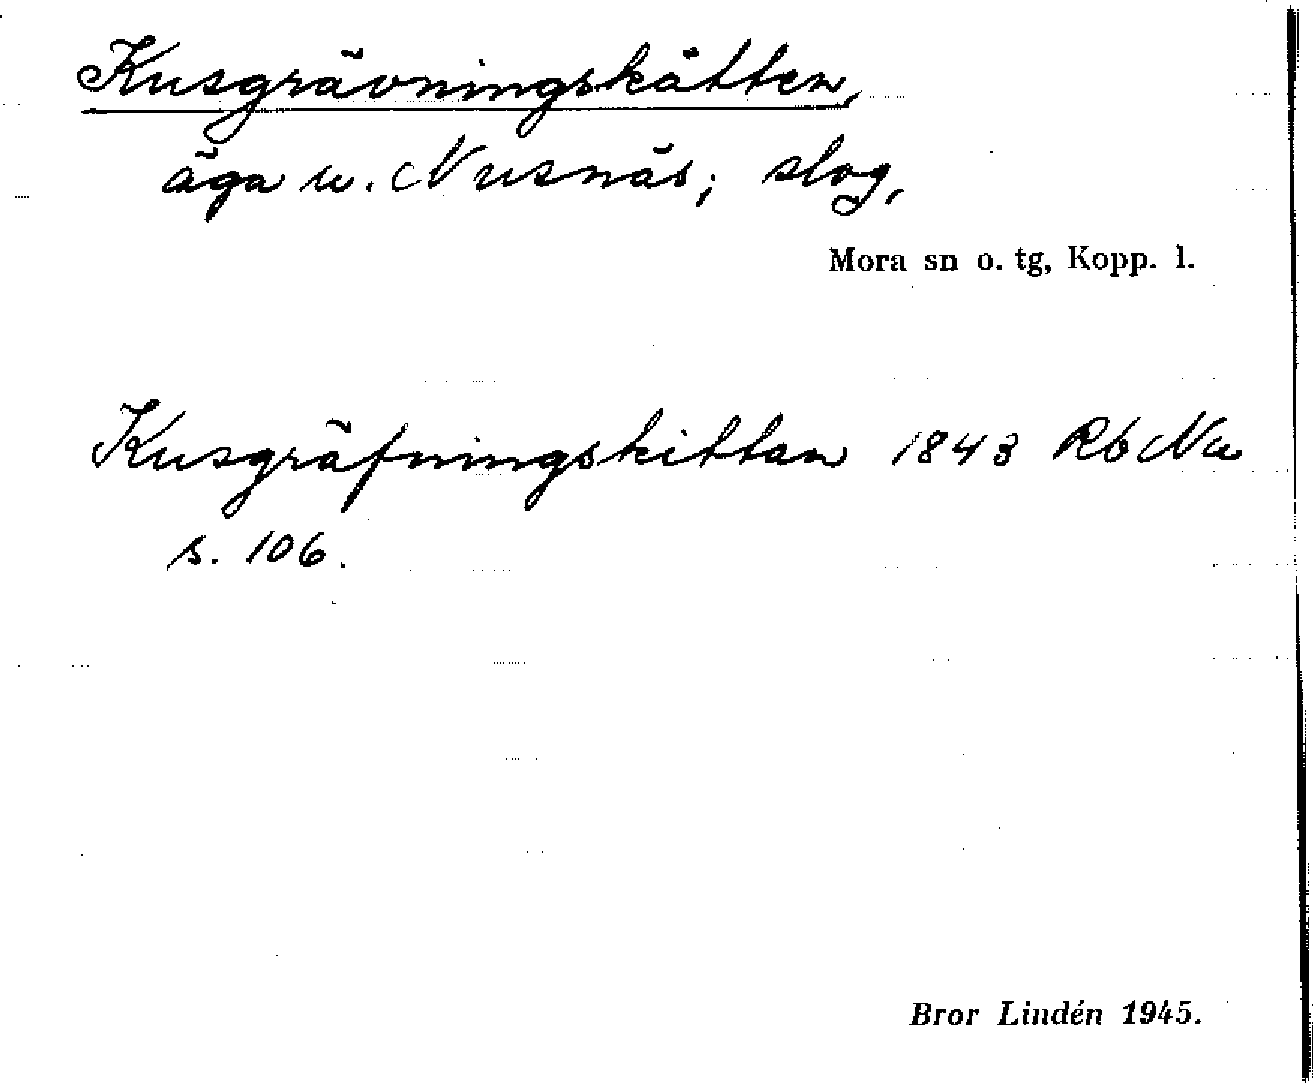 Kusgrävningskätten,
äga u. Nusnäs; slog,
Mora sn o. tg, Kopp. l.
Kusgräfningskittan 1843 Rb Nu
s. 106.
Bror Lindén 1945.